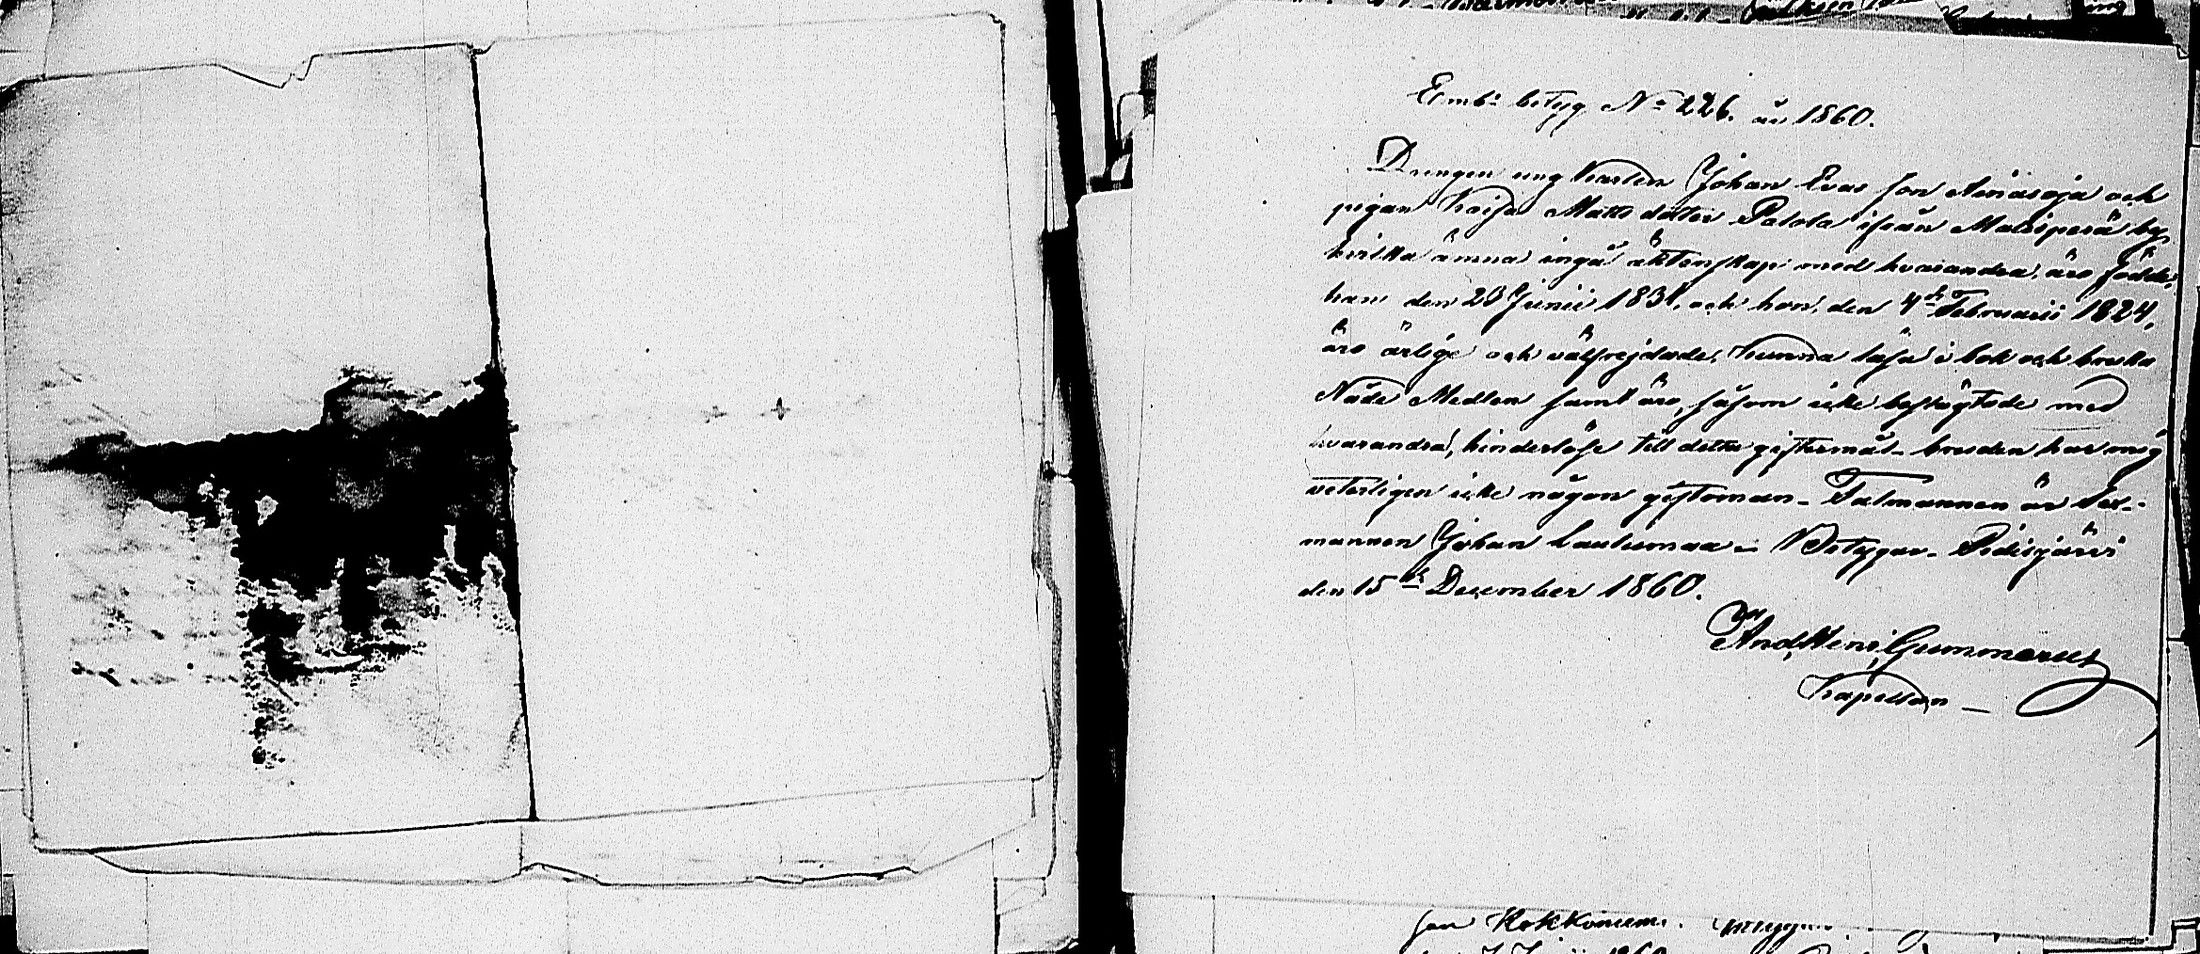 Embs betyg No 226. år 1860.
Drengen ungkarlen Johan Evas son Ainasoja och
pigan Kaisa Matts dotter Patola ifrån Malisperä by
hvilka ämna ingå äktenskap med hvarandra, äro födde,
han den 23 Junii 1831, och hon, den 4de Februarii 1824,
äro ärlige och välfrejdade, kunna läsa i bok och bruka
Nåde Medlen samt äro, såsom icke beslägtade med
hvarandra, hinderlöse till detta giftermål - bruden har mig
veterligen icke någon giftoman - Talmannen är Sex-
mannen Johan Lautumaa - Betygar - Pidisjärvi
den 15de December 1860.
And. Henr. Gummerus
Kapellan -
Kokkoniemi.